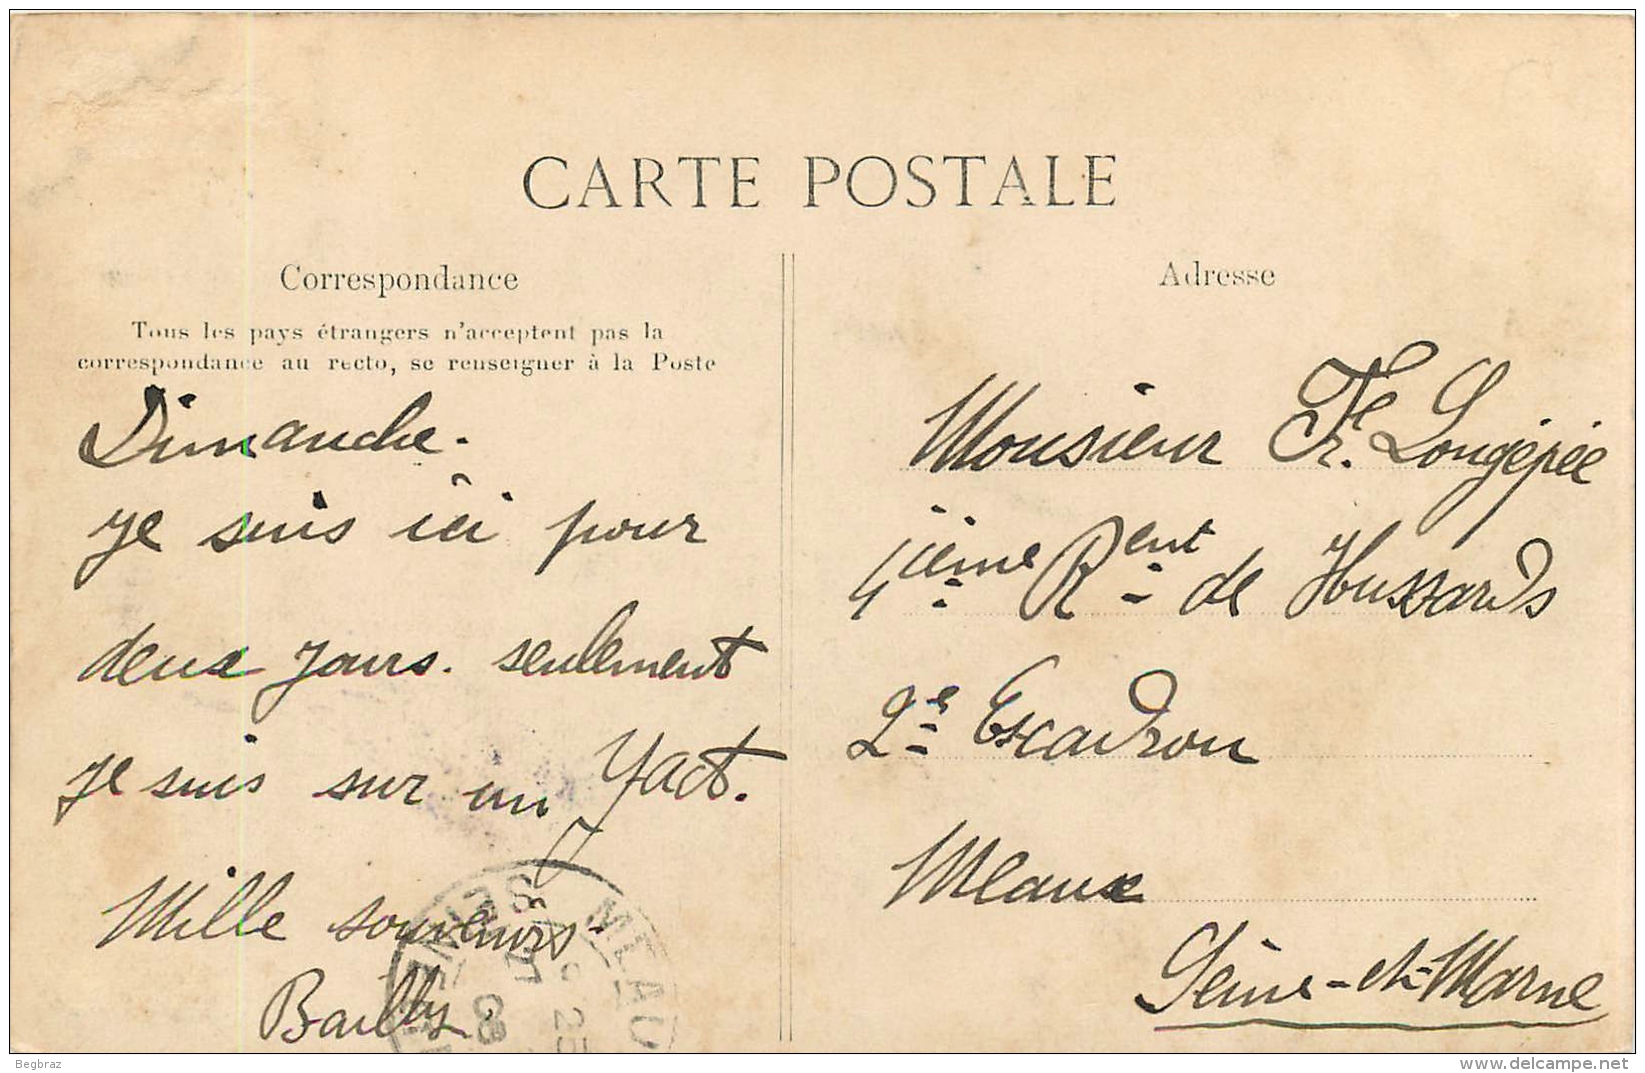 CARTE POSTALE
Correspondance
Tous les pays étrangers n'acceptent pas la
correspondance au recto, se renseigner à la Poste
Dimanche.
je suis ici pour
deux jours. seulement
je suis sur un Yact.
Mille souvenirs
Bailly
Adresse
Monsieur Fr. Longépée
4ième Rent de Hussards
2e Escadron
Meaux
Seine-et-Marne
MEAUX
SEINE ET M
25
08
Begbraz
www.delcampe.net